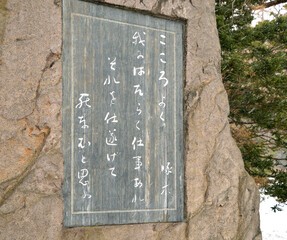 こころよく
啄木
我にはたらく仕事あれ
それを仕遂げて
死なむと思ふ